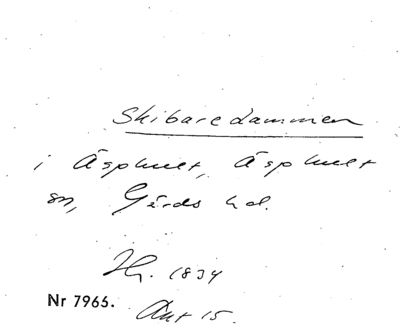 Skibaredammen
i Äsphult, Äsphult
sn, Gärds hd.
Hr. 1834
Nr 7965.
Akt 15.